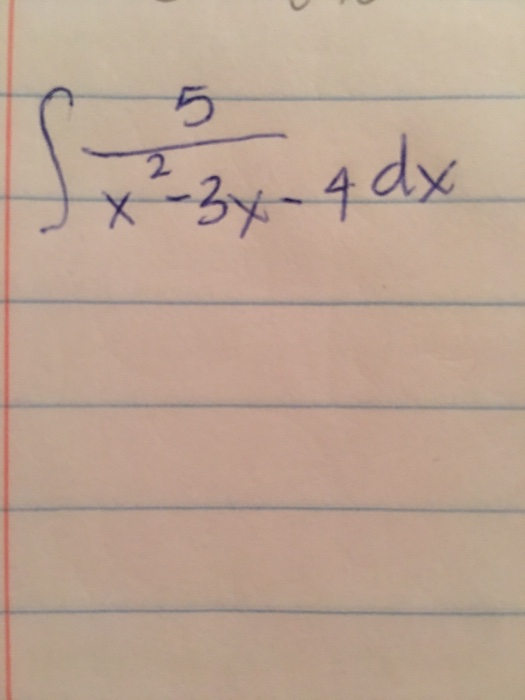 ∫ 5/(x²-3x-4) dx